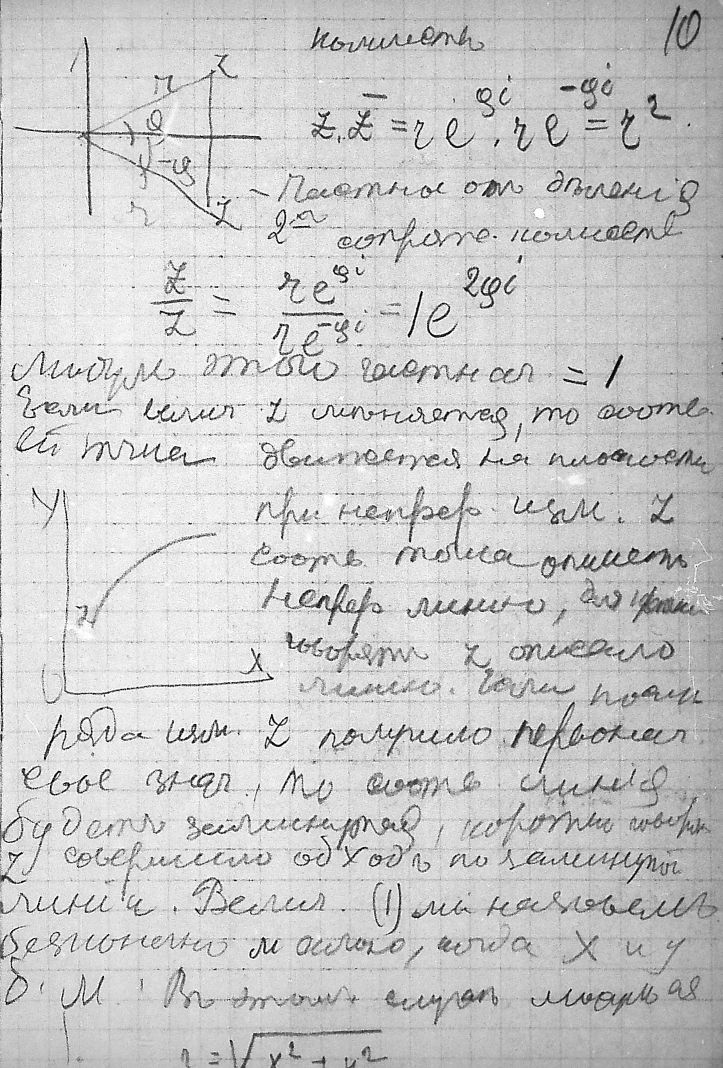 10
z
r
φ
-φ
r
z̄
z. z̄ = re^{φi}. re^{-φi} = r².
Частное от деленія
2ʰ сопряж. комплексн
z/z̄ = re^{φi}/re^{-φi} = 1e^{2φi}
этого частнаго = 1
Если велич z меняется, то соотв.
ей точка движется на плоскости
Y
при непрер. изм. z
соотв точка опишетъ
z
непрер линію, для
X
говорятъ z описало
0
линію. Если послѣ
ряда изм. z получило первонач
свое знач, то соотв линія
будетъ замкнутая, коротко говоря
z совершило обходъ по замкнутой
линіи. Велич. (1) мы назовемъ
безконечно малою, когда x и y
б. м. Въ этомъ случаѣ
r = √x² + y²